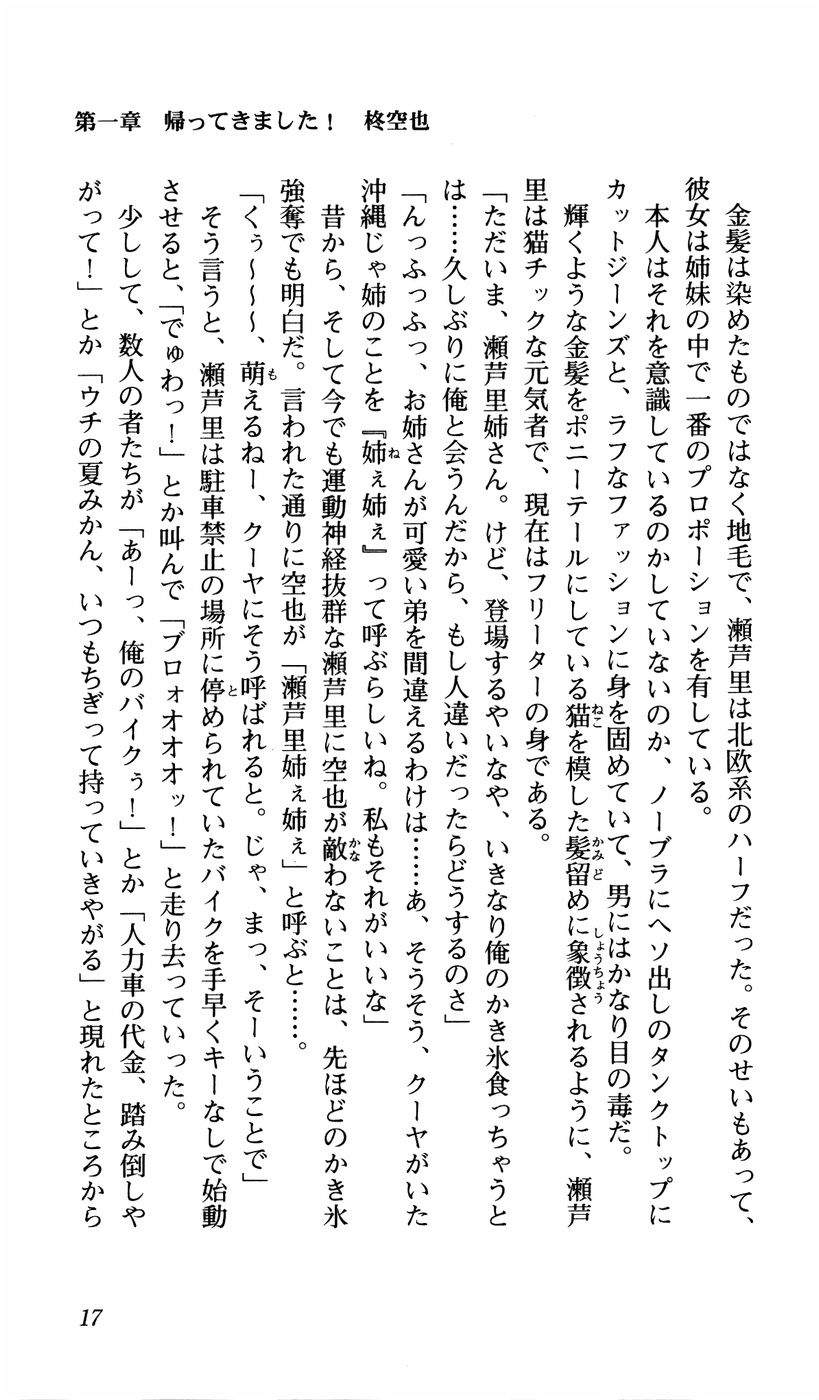 第一章　帰ってきました！　柊空也
　金髪は染めたものではなく地毛で、瀬芦里は北欧系のハーフだった。そのせいもあって、
彼女は姉妹の中で一番のプロポーションを有している。
　本人はそれを意識しているのかしていないのか、ノーブラにヘソ出しのタンクトップに
カットジーンズと、ラフなファッションに身を固めていて、男にはかなり目の毒だ。
　輝くような金髪をポニーテールにしている猫を模した髪留めに象徴されるように、瀬芦
里は猫チックな元気者で、現在はフリーターの身である。
「ただいま、瀬芦里姉さん。けど、登場するやいなや、いきなり俺のかき氷食っちゃうと
は……久しぶりに俺と会うんだから、もし人違いだったらどうするのさ」
「んっふっふっ、お姉さんが可愛い弟を間違えるわけは……あ、そうそう、クーヤがいた
沖縄じゃ姉のことを『姉ぇ姉ぇ』って呼ぶらしいね。私もそれがいいな」
　昔から、そして今でも運動神経抜群な瀬芦里に空也が敵わないことは、先ほどのかき氷
強奪でも明白だ。言われた通りに空也が「瀬芦里姉ぇ姉ぇ」と呼ぶと……。
「くぅ～～～、萌えるねー、クーヤにそう呼ばれると。じゃ、まっ、そーいうことで」
　そう言うと、瀬芦里は駐車禁止の場所に停められていたバイクを手早くキーなしで始動
させると、「でゅわっ！」とか叫んで「ブロォオオオッ！」と走り去っていった。
　少しして、数人の者たちが「あーっ、俺のバイクぅ！」とか「人力車の代金、踏み倒しや
がって！」とか「ウチの夏みかん、いつもちぎって持っていきやがる」と現れたところから
17